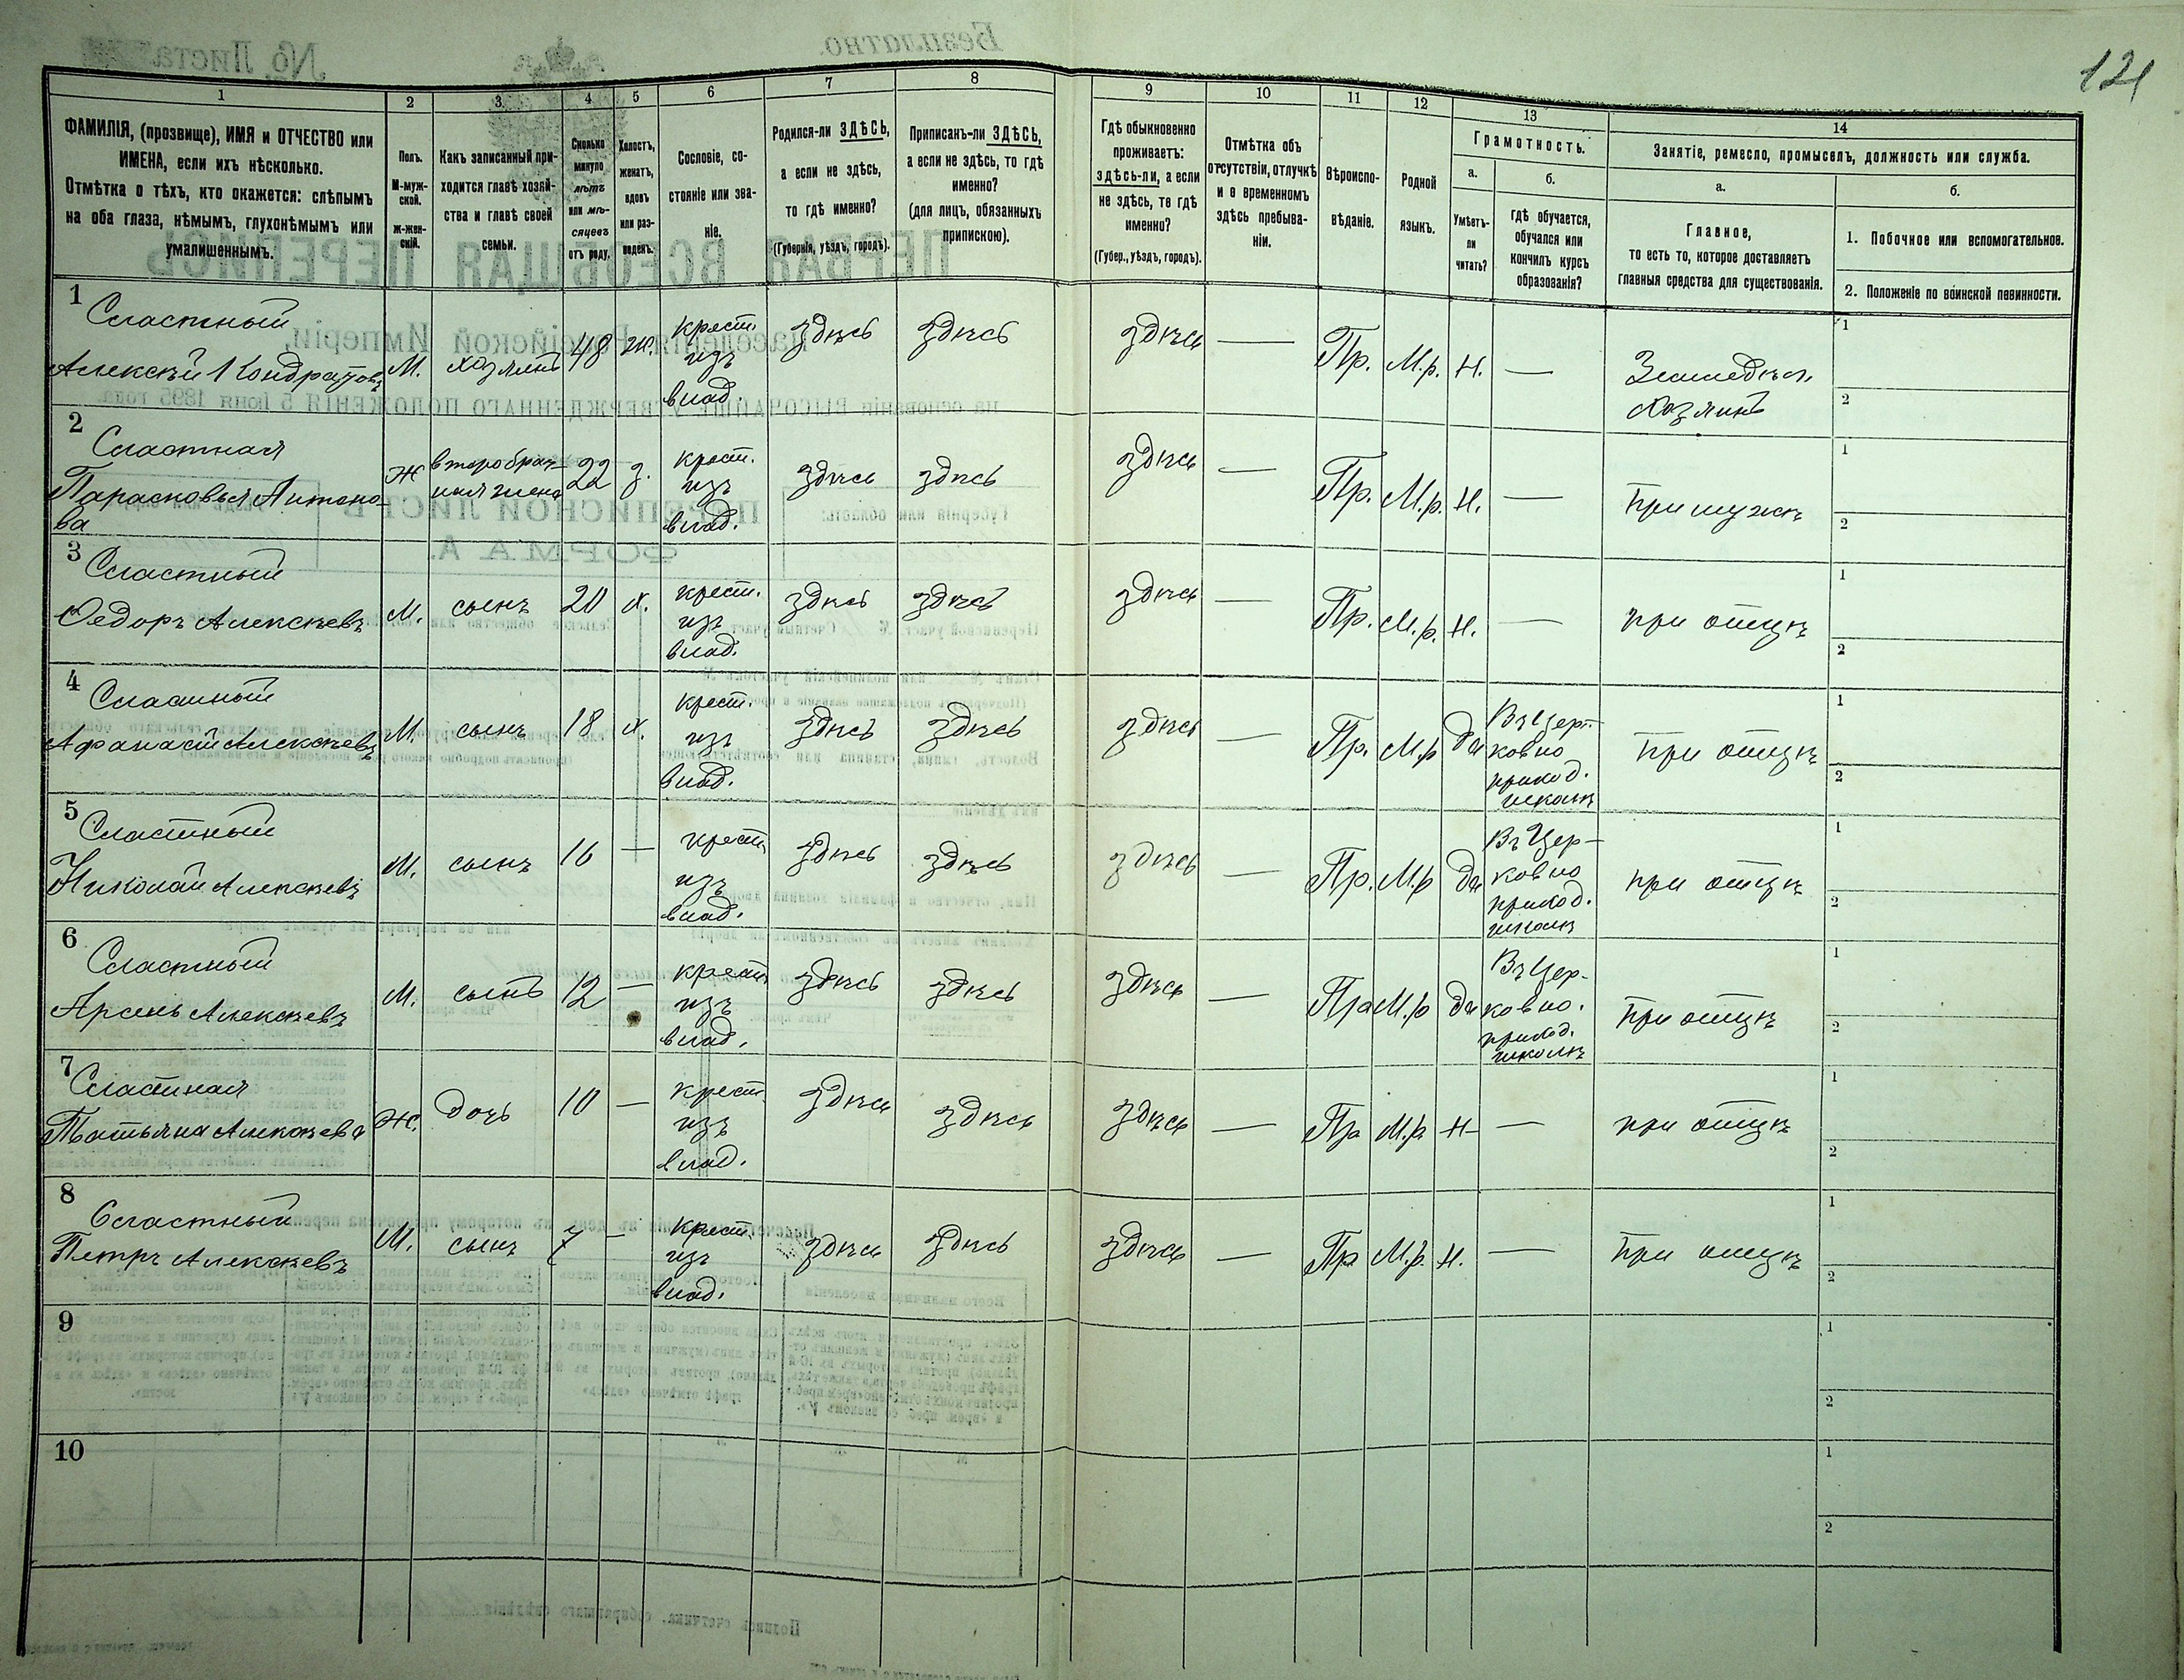 121
1
2
3
4
5
6
7
8
9
10
11
12
13
14
ФАМИЛІЯ, (прозвище), ИМЯ и ОТЧЕСТВО или
ИМЕНА, если ихъ нѣсколько.
Отмѣтка о тѣхъ, кто окажется: слѣпымъ
на оба глаза, нѣмымъ, глухонѣмымъ или
умалишеннымъ.
Полъ.
М-муж-
ской.
Ж-жен-
скій.
Какъ записанный при-
ходится главѣ хозяй-
ства и главѣ своей
семьи.
Сколько
минуло
лѣтъ
или мѣ-
сяцевъ
отъ роду.
Холостъ,
женатъ,
вдовъ
или раз-
веденъ.
Сословіе, со-
стояніе или зва-
ніе.
Родился-ли ЗДѢСЬ,
а если не здѣсь,
то гдѣ именно?
(Губернія, уѣздъ, городъ).
Приписанъ-ли ЗДѢСЬ,
а если не здѣсь, то гдѣ
именно?
(для лицъ, обязанныхъ
припискою).
Гдѣ обыкновенно
проживаетъ:
здѣсь-ли, а если
не здѣсь, то гдѣ
именно?
(Губер., уѣздъ, городъ).
Отмѣтка объ
отсутствіи, отлучкѣ
и о временномъ
здѣсь пребыва-
ніи.
Вѣроиспо-
вѣданіе.
Родной
языкъ.
Грамотность.
а.
Умѣетъ-
ли
читать?
б.
Гдѣ обучается,
обучался или
кончилъ курсъ
образованія?
Занятіе, ремесло, промыселъ, должность или служба.
а.
Главное,
то есть то, которое доставляетъ
главныя средства для существованія.
б.
1. Побочное или вспомогательное.
2. Положеніе по воинской повинности.
1
Сластный
Алексѣй Кондратовъ
М.
хозяинъ
48
ж.
крест.
изъ
влад.
здѣсь
здѣсь
здѣсь
—
Пр.
М.р.
Н.
—
Земледѣл.
хозяинъ
1
2
2
Сластная
Парасковья Антоно-
ва
Ж
второбрач-
ная жена
22
з.
крест.
изъ
влад.
здѣсь
здѣсь
здѣсь
—
Пр.
М.р.
Н.
—
при мужѣ
1
2
3
Сластный
Федоръ Алексѣевъ
М.
сынъ
20
х.
крест.
изъ
влад.
здѣсь
здѣсь
здѣсь
—
Пр.
М.р.
Н.
—
при отцѣ
1
2
4
Сластный
Афанасій Алексѣевъ
М.
сынъ
18
х.
крест.
изъ
влад.
здѣсь
здѣсь
здѣсь
—
Пр.
М.р
да
Въ Цер-
ковно
приход.
школѣ
при отцѣ
1
2
5
Сластный
Николай Алексѣевъ
М.
сынъ
16
—
крест.
изъ
влад.
здѣсь
здѣсь
здѣсь
—
Пр.
М.р
да
Въ Цер-
ковно
приход.
школѣ
при отцѣ
1
2
6
Сластный
Арсень Алексѣевъ
М.
сынъ
12
—
крест.
изъ
влад.
здѣсь
здѣсь
здѣсь
—
Пра
М.р
да
Въ Цер-
ковно.
приход.
школѣ
при отцѣ
1
2
7
Сластная
Татьяна Алексѣева
Ж.
дочь
10
—
крест.
изъ
влад.
здѣсь
здѣсь
здѣсь
—
Пра
М.р.
Н
—
при отцѣ
1
2
8
Сластный
Петръ Алексѣевъ
М.
сынъ
7
—
крест.
изъ
влад.
здѣсь
здѣсь
здѣсь
—
Пра
М.р.
Н.
—
при отцѣ
1
2
9
1
2
10
1
2